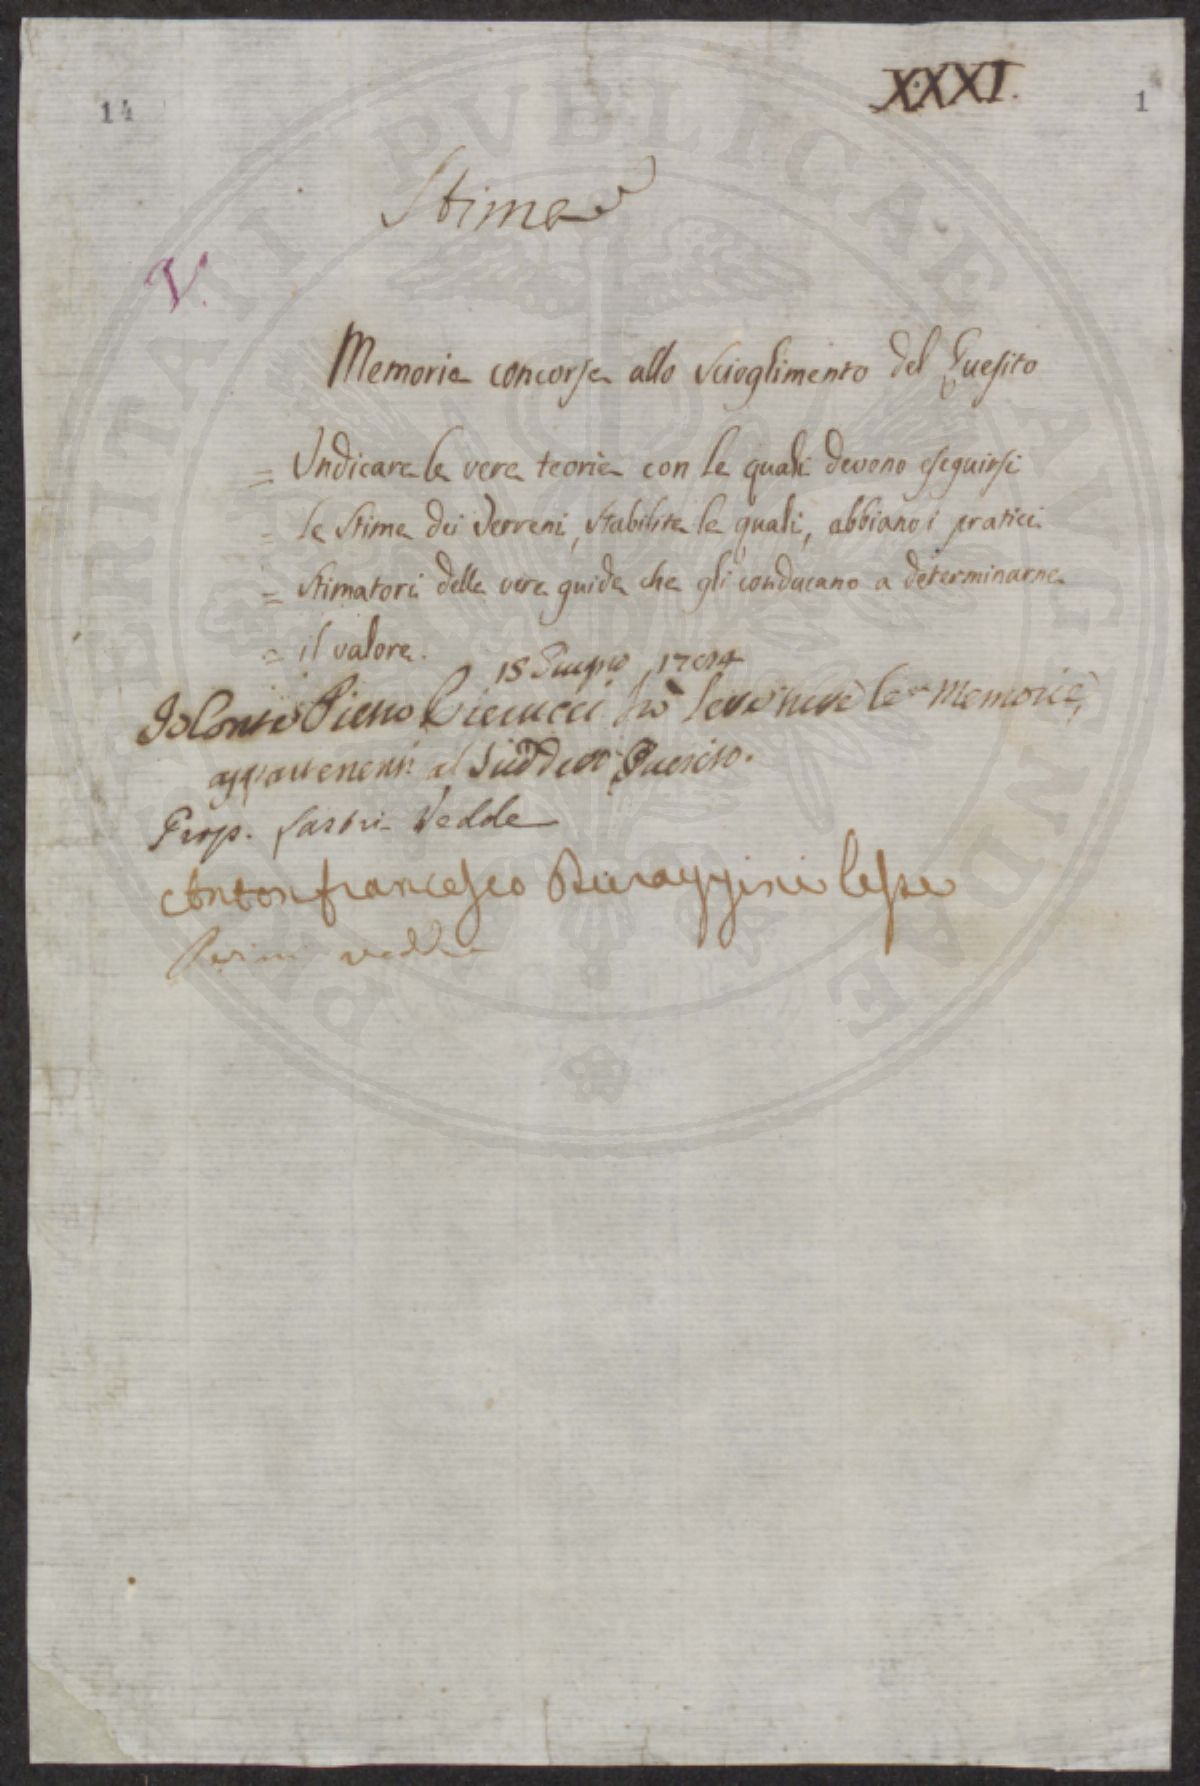 14
XXXI.
1
Stime
V.
Memorie concorse allo scioglimento del Quesito
= Indicare le vere teorie con le quali devono eseguirsi
= le stime dei Terreni, stabilite le quali, abbiano i pratici
= stimatori delle vere guide che gli conducano a determinarne
= il valore.
15 Giugno
Io Conte Pietro hò le Memorie,
appartenenti al Sudd.to Quesito.
Prop. Sarti Vedde
Antonfrancesco lesse
vedde
PVBLICAE AVGENDAE